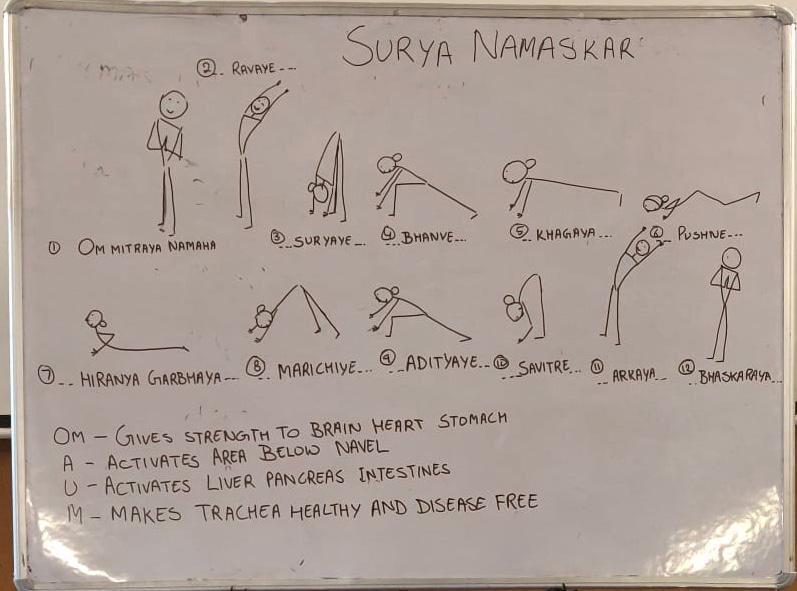 SURYA NAMASKAR
② .. RAVAYE ...
① OM MITRAYA NAMAHA
③ ... SURYAYE ...
④ ... BHANVE ...
⑤ .. KHAGAYA ...
⑥ .. PUSHNE ...
⑦ ... HIRANYA GARBHAYA ...
⑧ .. MARICHIYE ...
⑨ .. ADITYAYE ..
⑩ ... SAVITRE ...
⑪ ... ARKAYA ...
⑫ ... BHASKARAYA ...
OM - GIVES STRENGTH TO BRAIN HEART STOMACH
A - ACTIVATES AREA BELOW NAVEL
U - ACTIVATES LIVER PANCREAS INTESTINES
M - MAKES TRACHEA HEALTHY AND DISEASE FREE